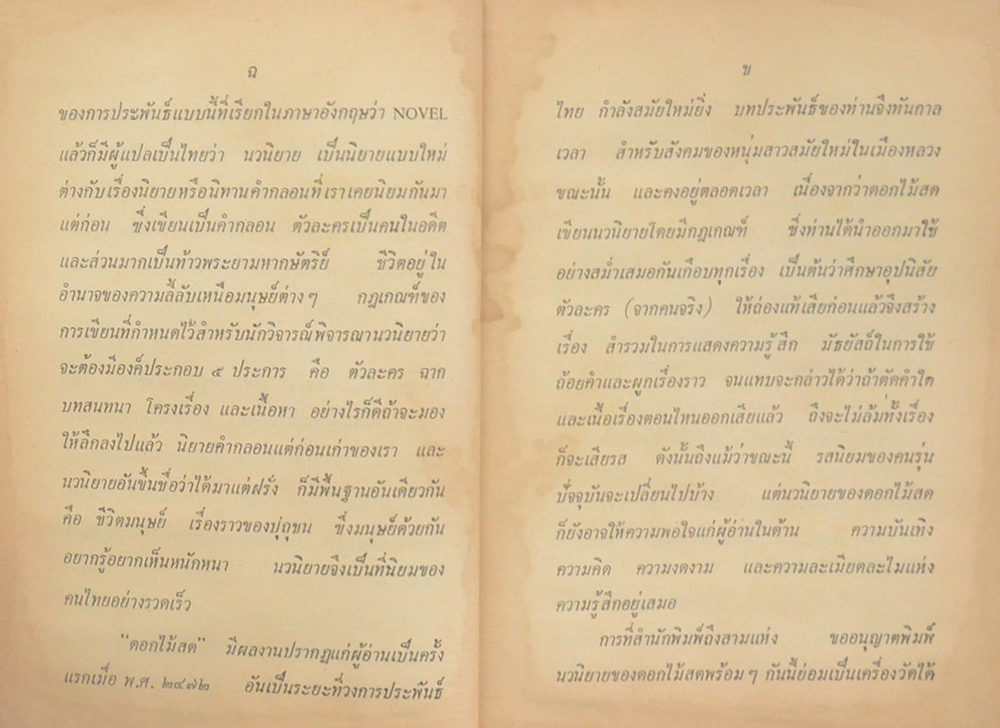 ฉ
ของการประพันธ์แบบนี้ที่เรียกในภาษาอังกฤษว่า NOVEL
แล้วก็มีผู้แปลเป็นไทยว่า นวนิยาย เป็นนิยายแบบใหม่
ต่างกับเรื่องนิยายหรือนิทานคำกลอนที่เราเคยนิยมกันมา
แต่ก่อน ซึ่งเขียนเป็นคำกลอน ตัวละครเป็นคนในอดีต
และส่วนมากเป็นท้าวพระยามหากษัตริย์ ชีวิตอยู่ใน
อำนาจของความลี้ลับเหนือมนุษย์ต่างๆ กฎเกณฑ์ของ
การเขียนที่กำหนดไว้สำหรับนักวิจารณ์พิจารณานวนิยายว่า
จะต้องมีองค์ประกอบ ๕ ประการ คือ ตัวละคร ฉาก
บทสนทนา โครงเรื่อง และเนื้อหา อย่างไรก็ดีถ้าจะมอง
ให้ลึกลงไปแล้ว นิยายคำกลอนแต่ก่อนเก่าของเรา และ
นวนิยายอันขึ้นชื่อว่าได้มาแต่ฝรั่ง ก็มีพื้นฐานอันเดียวกัน
คือ ชีวิตมนุษย์ เรื่องราวของปุถุชน ซึ่งมนุษย์ด้วยกัน
อยากรู้อยากเห็นหนักหนา นวนิยายจึงเป็นที่นิยมของ
คนไทยอย่างรวดเร็ว
"ดอกไม้สด" มีผลงานปรากฏแก่ผู้อ่านเป็นครั้ง
แรกเมื่อ พ.ศ. ๒๔๗๒ อันเป็นระยะที่วงการประพันธ์
ช
ไทย กำลังสมัยใหม่ยิ่ง บทประพันธ์ของท่านจึงทันกาล
เวลา สำหรับสังคมของหนุ่มสาวสมัยใหม่ในเมืองหลวง
ขณะนั้น และคงอยู่ตลอดเวลา เนื่องจากว่าดอกไม้สด
เขียนนวนิยายโดยมีกฎเกณฑ์ ซึ่งท่านได้นำออกมาใช้
อย่างสม่ำเสมอกันเกือบทุกเรื่อง เป็นต้นว่าศึกษาอุปนิสัย
ตัวละคร (จากคนจริง) ให้ถ่องแท้เสียก่อนแล้วจึงสร้าง
เรื่อง สำรวมในการแสดงความรู้สึก มัธยัสถ์ในการใช้
ถ้อยคำและผูกเรื่องราว จนแทบจะกล่าวได้ว่าถ้าตัดคำใด
และเนื้อเรื่องตอนไหนออกเสียแล้ว ถึงจะไม่ล้มทั้งเรื่อง
ก็จะเสียรส ดังนั้นถึงแม้ว่าขณะนี้ รสนิยมของคนรุ่น
ปัจจุบันจะเปลี่ยนไปบ้าง แต่นวนิยายของดอกไม้สด
ก็ยังอาจให้ความพอใจแก่ผู้อ่านในด้าน ความบันเทิง
ความคิด ความงดงาม และความละเมียดละไมแห่ง
ความรู้สึกอยู่เสมอ
การที่สำนักพิมพ์ถึงสามแห่ง ขออนุญาตพิมพ์
นวนิยายของดอกไม้สดพร้อมๆ กันนี้ย่อมเป็นเครื่องวัดได้